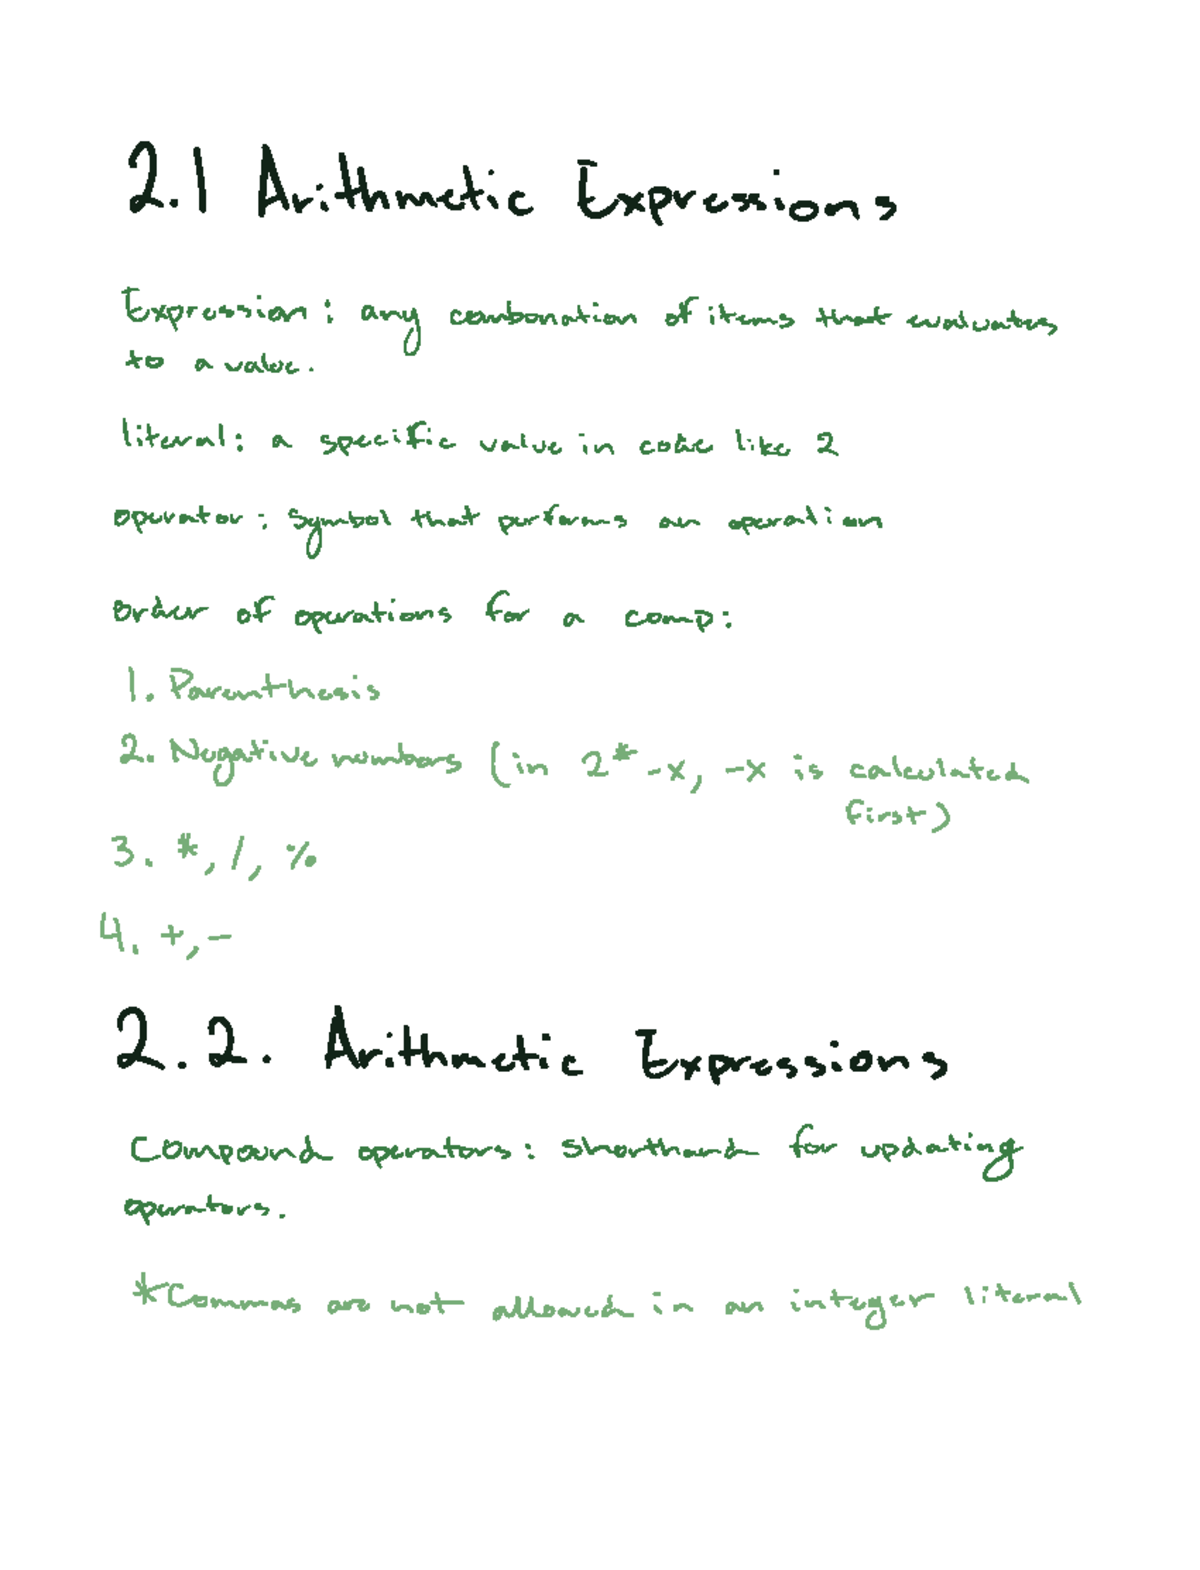 2.1 Arithmetic Expressions
Expression: any combonation of items that evaluates
to a value.
literal: a specific value in code like 2
operator: symbol that performs an operation
order of operations for a comp:
1. Parenthesis
2. Negative numbers (in 2* -x, -x is calculated
first)
3. *, /, %
4. +, -
2.2. Arithmetic Expressions
Compound operators: shorthand for updating
operators.
*Commas are not allowed in an integer literal